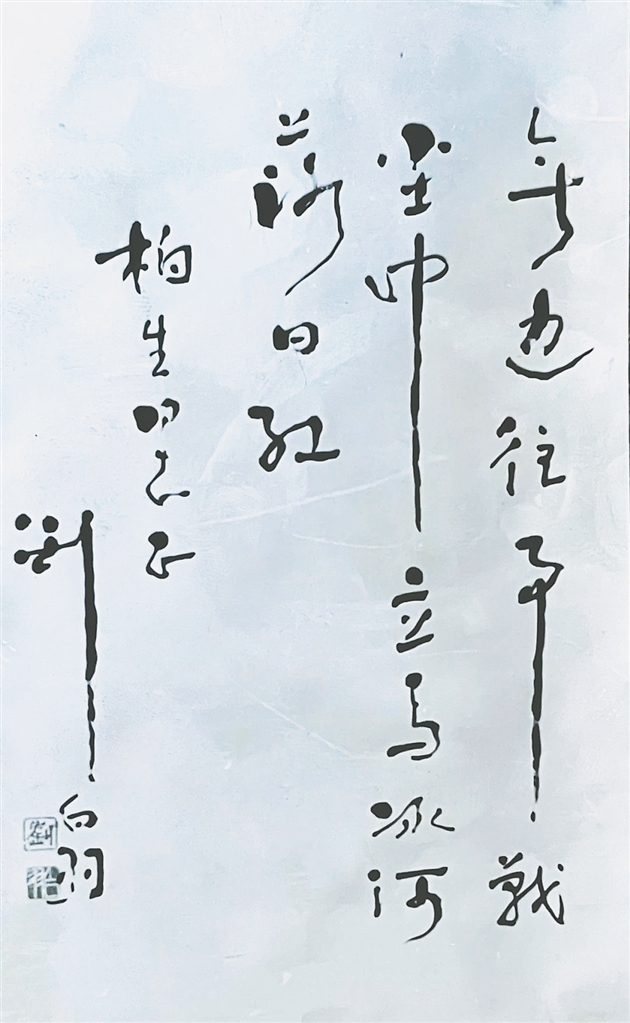 无边往事战
尘中立马冰河
落日红
柏生同志正
刘白羽
劉